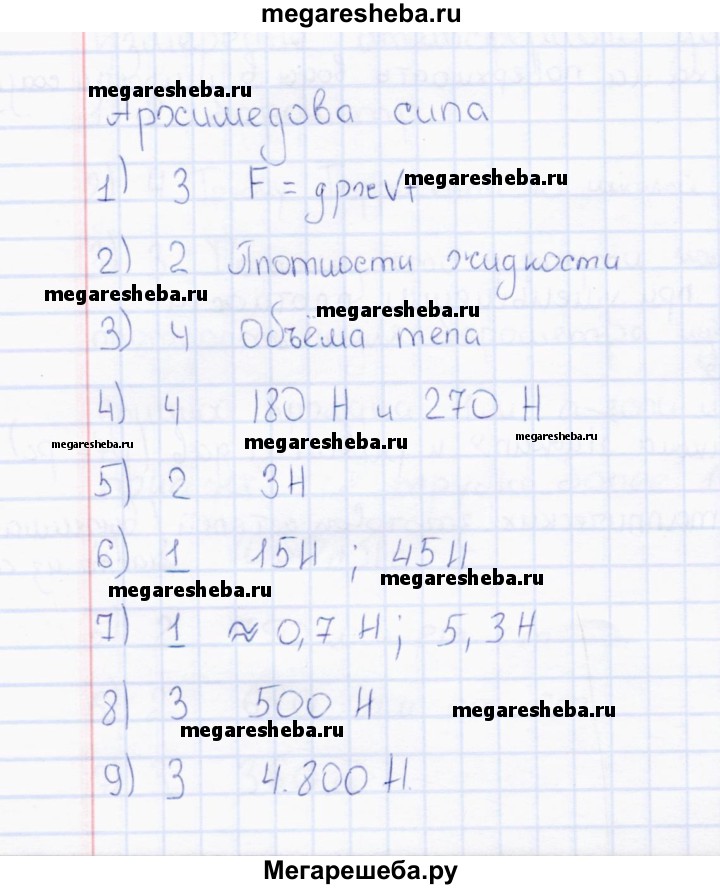 megaresheba.ru
megaresheba.ru
Архимедова сила
1) 3 F = gρжVт
megaresheba.ru
2) 2 Плотности жидкости
megaresheba.ru
megaresheba.ru
3) 4 Объёма тела
4) 4 180 Н и 270 Н
megaresheba.ru
megaresheba.ru
megaresheba.ru
5) 2 3Н
6) 1 15Н ; 45Н
megaresheba.ru
megaresheba.ru
7) 1 ≈ 0,7 Н ; 5,3Н
8) 3 500 Н
megaresheba.ru
megaresheba.ru
9) 3 4.800 Н.
Мегарешеба.ру